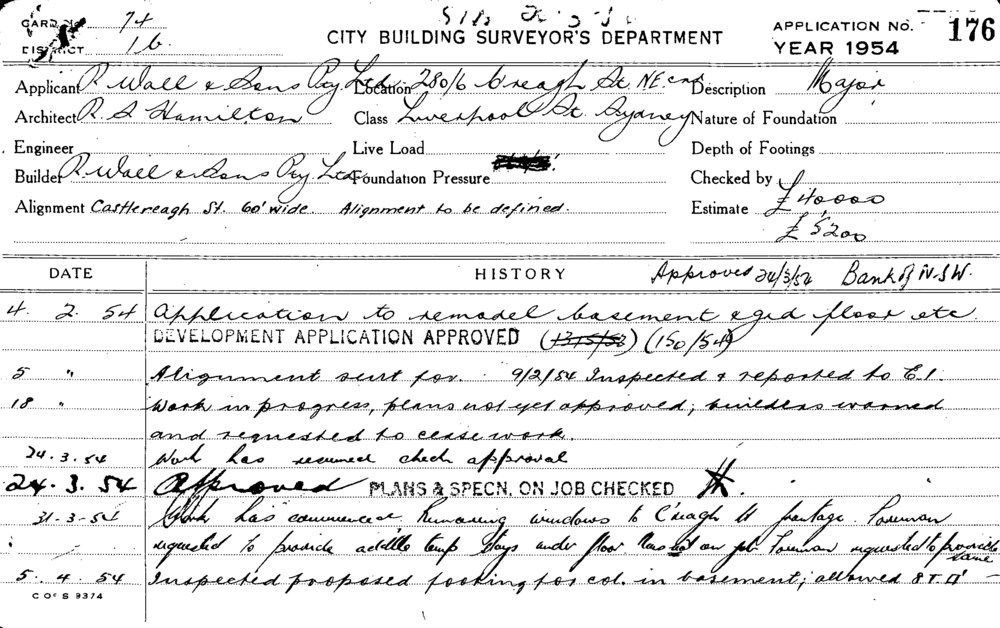 CARD No. 74
DISTRICT 16
CITY BUILDING SURVEYOR'S DEPARTMENT
APPLICATION NO. 176
YEAR 1954
Applicant R Wall & Sons Pty Ltd Location 280/6 C'reagh St. N.E. cnr Description Major
Architect R. S Hamilton Class Liverpool St. Sydney Nature of Foundation
Engineer Live Load Depth of Footings
Builder R Wall & Sons Pty. Ltd. Foundation Pressure Checked by
Alignment Castlereagh St. 60' wide. Alignment to be defined. Estimate £40,000
£5200
DATE HISTORY Approved 24/3/54 Bank of N.S.W.
4. 2. 54 Application to remodel basement & grd floor etc
DEVELOPMENT APPLICATION APPROVED (1315/53) (150/54)
5 " Alignment sent for. 9/2/54 Inspected & reported to E.I.
18 " Work in progress, plans not yet approved; builders warned
and requested to cease work.
24.3.54 Work has resumed check approval
24.3.54 Approved PLANS & SPECN. ON JOB CHECKED
31-3-54 Work has commenced. Removing windows to C'reagh St frontage. Foreman
requested to provide temp stays under floor not on job Foreman requested to provide
same
5. 4. 54 Inspected proposed footing for col. in basement; allowed 8 T.
C OF S 9374